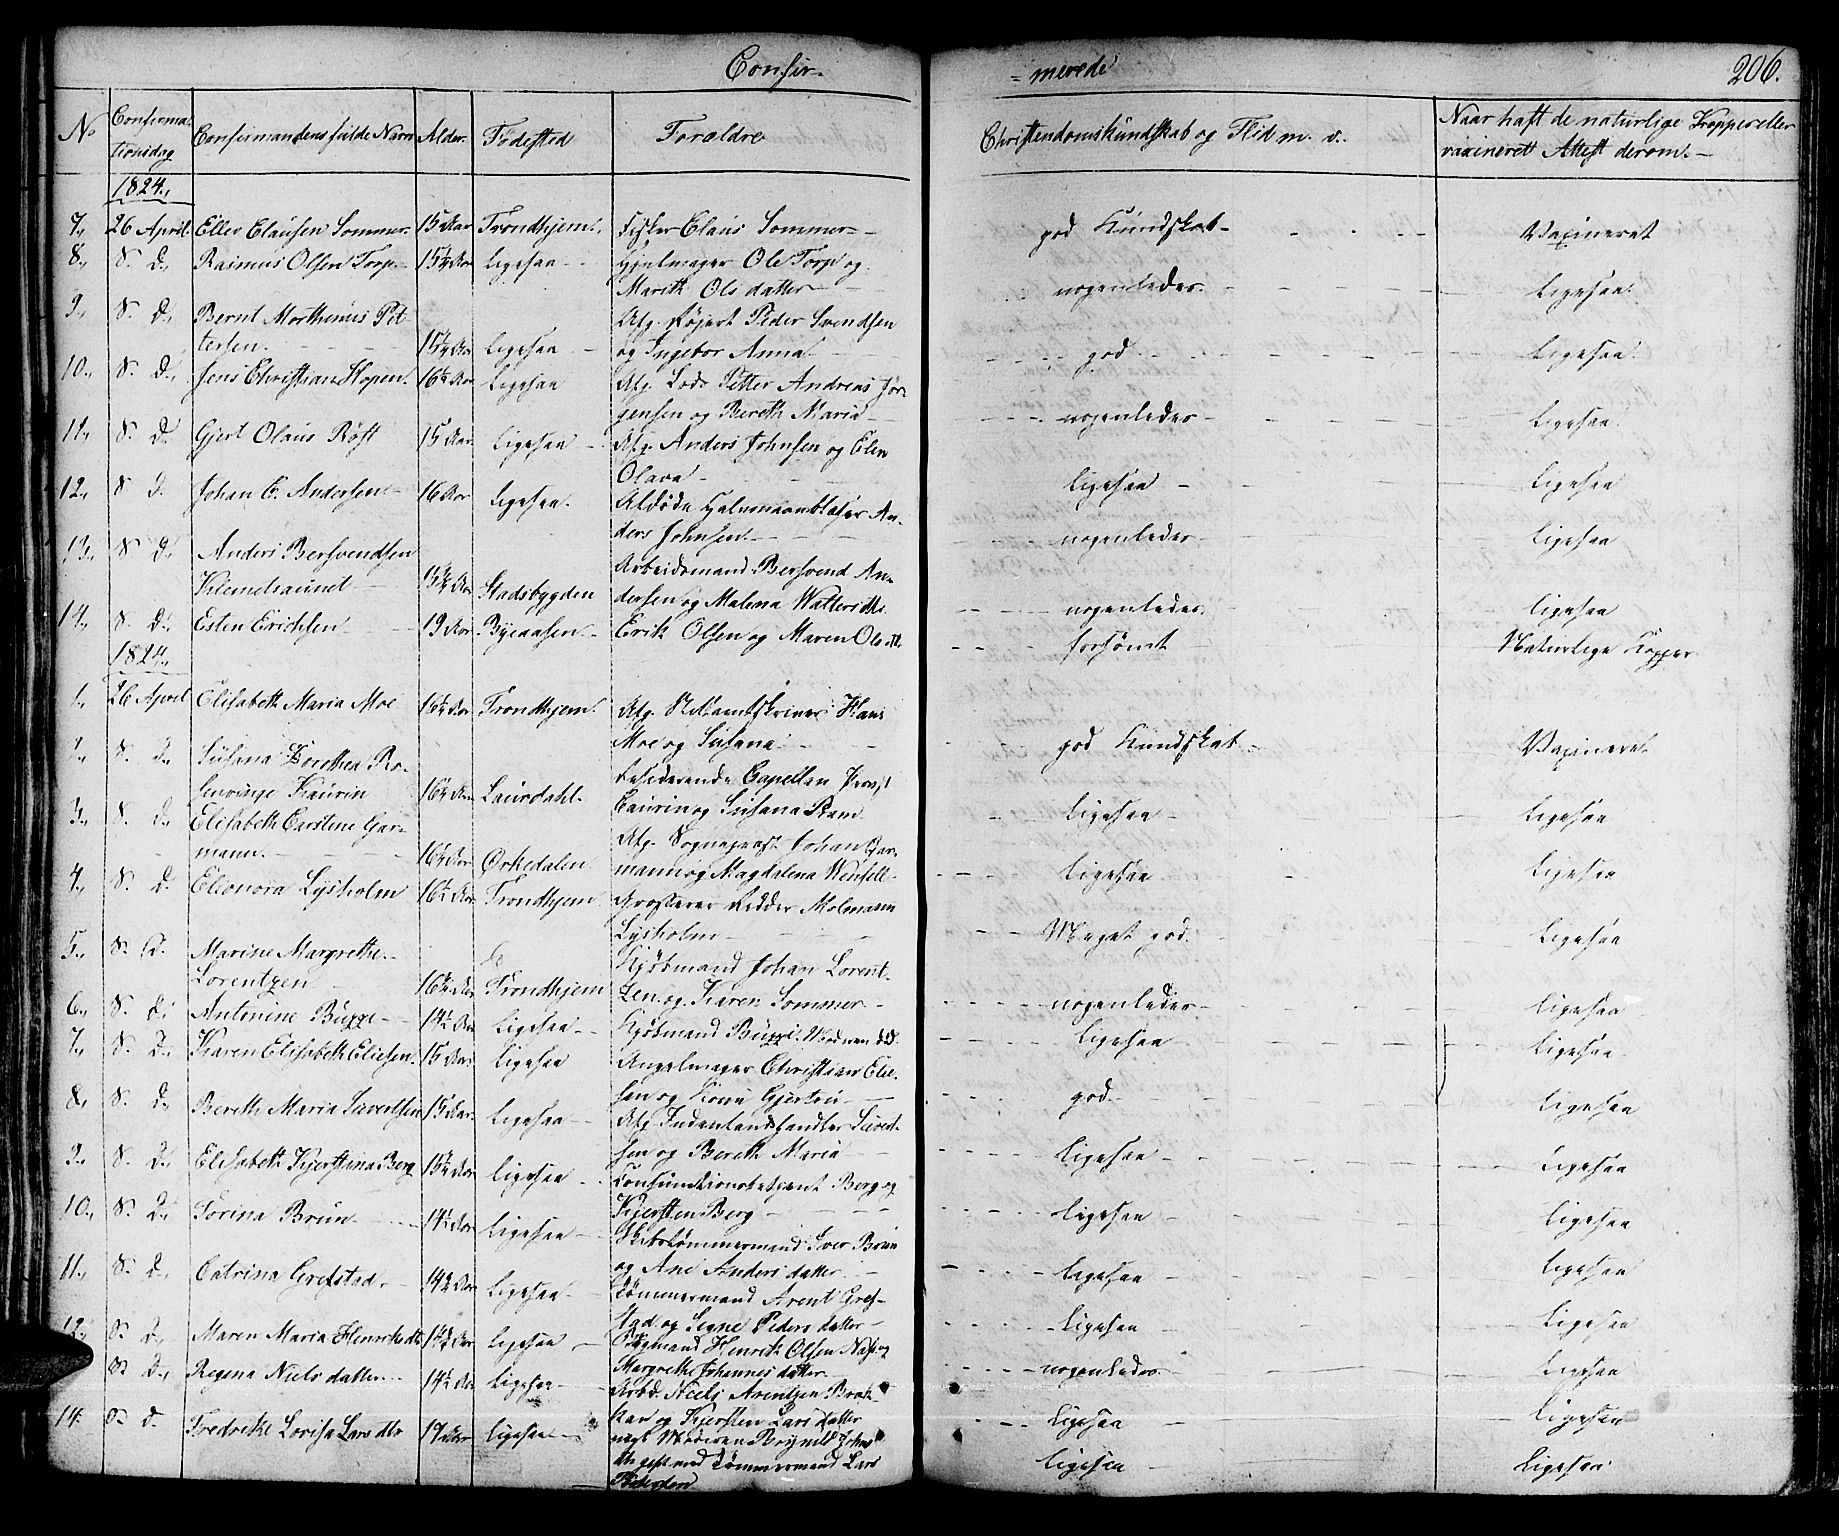 Confir-
= merede
206.
No
Confirmationsdag
Confirmandens fulde Navn
Alder.
Fødested
Forældre
Christendomskundskab og Flid m. v.
Naar haft de naturlige Kopper eller
vaxineret Attest derom. -
1824.
7., 26 April Eller Clausen Sommer 15 Aar Trondhjem. Fisker Claus Sommer - god Kundskab - Vaxineret
8., S. D., Rasmus Olsen Torp 15¼ Aar Ligesaa - Hjulmager Ole Torp og
Marith Olsdatter nogenledes. Ligesaa.
9., S. D., Bernt Morthinus Pet-
tersen. 15¼ Aar Ligesaa - Afg. Peder Svendsen
og Ingebor Anna god. Ligesaa.
10., S. D., Jens Christian Hopen. 16½ Aar Ligesaa Afg. Lods Petter Andreas Jør-
gensen og Bereth Maria nogenledes Ligesaa.
11., S. D., Gjert Olaus Røst 15 Aar. Ligesaa Afg. Anders Johnsen og Elen
Olava Ligesaa Ligesaa
12., S. D. Johan C. Andersen 16 Aar Ligesaa. An-
ders Johnsen nogenledes Ligesaa
13., S. D., Anders Bersvendsen
15¼ Aar Stadsbygden Arbeidsmand Bersvend An-
dersen og Malena nogenledes Ligesaa
14., S. D., Esten Erichsen 19 Aar Byeaasen Erik Olsen og Maren Olsdtr. forsømt Naturlige Kopper
1824.
1., 26 April Elisabeth Maria Moe 16¼ Aar Trondhjem. Afg. Hans
Moe og Susana god Kundskab Vaxineret
S. D., Susana Dorothea Ro-
senvinge Kaurin 16¼ Aar Laurdahl. residerende Capellan Provst
Caurin og Susana Ram Ligesaa Ligesaa
3., S. D., Elisabeth Carstine Gar-
mann. 16¼ Aar Ørkedalen. Afg. Sogneprest Johan Gar-
mann og Magdalena Wensell Ligesaa Ligesaa
4., S. D. Eleonora Lysholm 16½ Aar Trondhjem Grosserer Ridder Molmann
Lysholm Meget god. Ligesaa
5., S. D. Marine Margrethe
Lorentzen 16¼ Aar Trondhjem Kjøbmand Johan Lorent-
zen og Karen Sommer nogenledes Ligesaa
6., S. D. Antonine Bugge 14½ Aar Ligesaa Kjøbmand Bugge. Moderen død. Ligesaa Ligesaa
7., S. D., Karen Elisabeth Eliesen. 15 Aar. Ligesaa Christian Elie-
sen og Kone Gjertru god Ligesaa
8., S. D., Bereth Maria Sivertsen 15 Aar. Ligesaa Afg. Indenlandshandler Sivert-
sen og Bereth Maria Ligesaa Ligesaa
9., S. D., Elisabeth Kjerstina Berg 15¼ Aar Ligesaa Consumtionsbetjent Berg og
Kjersten Berg Ligesaa Ligesaa
10., S. D., Torina Brun 14½ Aar Ligesaa Skibstømmermand Iver Brun
og Ane Andersdatter. Ligesaa Ligesaa
11., S. D., Catrina Grefstad. 14¼ Aar Ligesaa Tømmermand Arent Gref-
stad og Signe Pedersdatter Ligesaa Ligesaa
12., S. D., Maren Maria Henrichsdtr 14¼ Aar Ligesaa Bygmand Henrich Olsen
Margrethe Johannesdatter nogenledes. Ligesaa
S. D., Regina Nielsdatter 14½ Aar Ligesaa Arbd. Niels Arentzen Brat-
og Kjersten Larsdatter Ligesaa Ligesaa
14. S. D. Fredrike Lovisa Larsdtr 17 Aar Ligesaa Moderen
gift med Tømmermand Lars
Pedersen Ligesaa Ligesaa